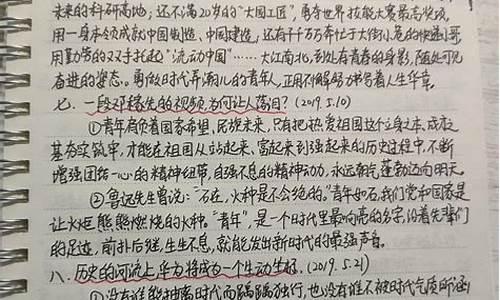 未来的科研高地；还不满20岁的“大国工匠”，勇夺世界技能大赛最高奖项，
用一身本领成就中国制造、中国建造；还有千千万万奔忙于大街小巷的快递小哥
用勤劳的双手托起“流动中国”……大江南北，到处有青春的身影，随处可见
奋进的姿态。勇做时代弄潮儿的青年人，正用不懈努力书写着人生华章。
七、一段邓稼先的视频，为何让人落泪？(2019.5.10)
①青年肩负着国家希望，民族未来，只有把热爱祖国这个立身之本、成才
基夯实筑牢，才能在祖国从站起来、富起来到强起来的历史过程中，不断
增强团结一心的精神纽带，自强不息的精神动力，永远朝气蓬勃迈向明天。
②鲁迅先生曾说：“石在，火种是不会绝的。”青年如石，我们党和国家是
让火炬熊熊燃烧的火种。“青年”，是一个时代里最响亮的名字，沿着先辈们
的足迹，前扑后继，生生不息，就能发出新时代的最强声音。
八、历史的河流上，华为将成为一个生动坐标。(2019.5.21)
①没有谁能抽离时代而踽踽独行，也没有谁不被时代气质所